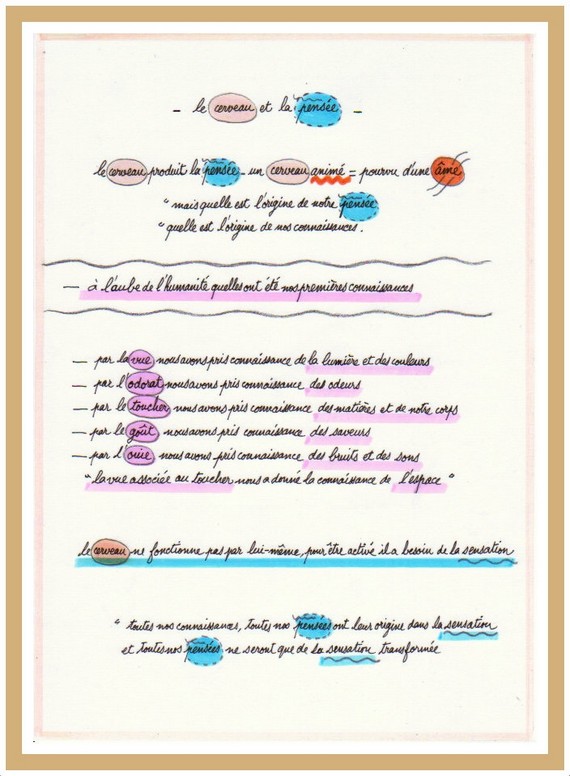 – le cerveau et la pensée –
le cerveau produit la pensée – un cerveau animé = pourvu d'une âme
" mais quelle est l'origine de notre pensée
" quelle est l'origine de nos connaissances.
— à l'aube de l'humanité quelles ont été nos premières connaissances
— par la vue nous avons pris connaissance de la lumière et des couleurs
— par l'odorat nous avons pris connaissance des odeurs
— par le toucher nous avons pris connaissance des matières et de notre corps
— par le goût nous avons pris connaissance des saveurs
— par l'ouïe nous avons pris connaissance des bruits et des sons
" la vue associée au toucher nous a donné la connaissance de l'espace "
le cerveau ne fonctionne pas par lui-même, pour être activé il a besoin de la sensation
" toutes nos connaissances, toutes nos pensées ont leur origine dans la sensation
et toutes nos pensées ne seront que de la sensation transformée